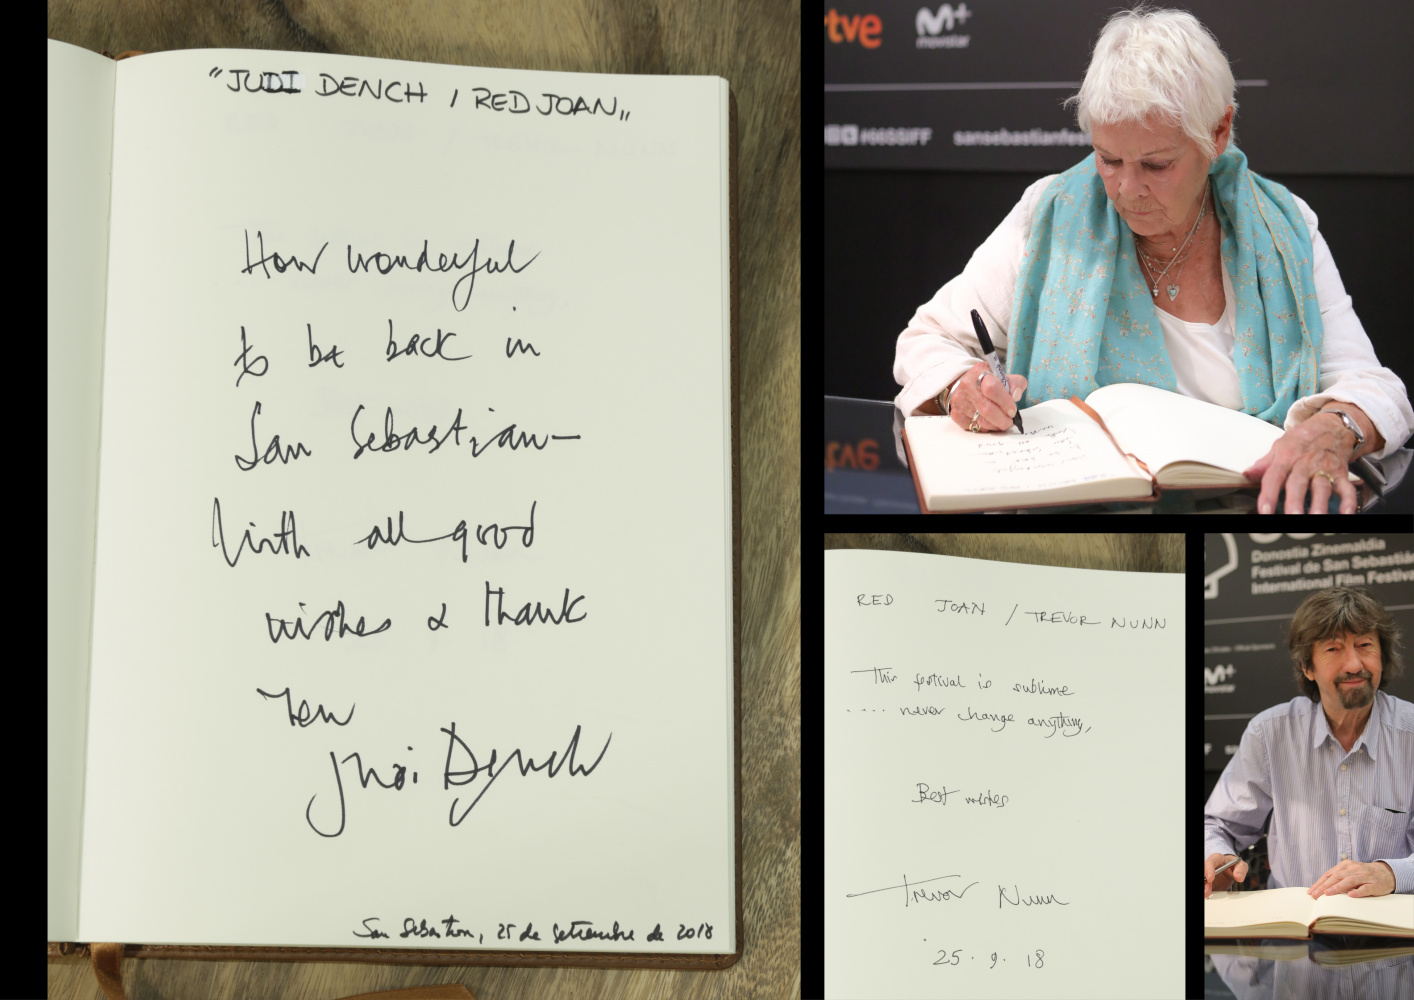 "JUDI DENCH / RED JOAN"
How wonderful
to be back in
San Sebastian—
With all good
wishes & thank
Judi Dench
San Sebastian, 25 de Setiembre de 2018
rtve
M+
movistar
#66SSIFF
sansebastianfes
rtve
RED JOAN / TREVOR NUNN
This festival is sublime
.... never change anything,
Best wishes
Trevor Nunn
25. 9. 18
Donostia Zinemaldia
Festival de San Sebastián
International Film Festival
M+
movistar